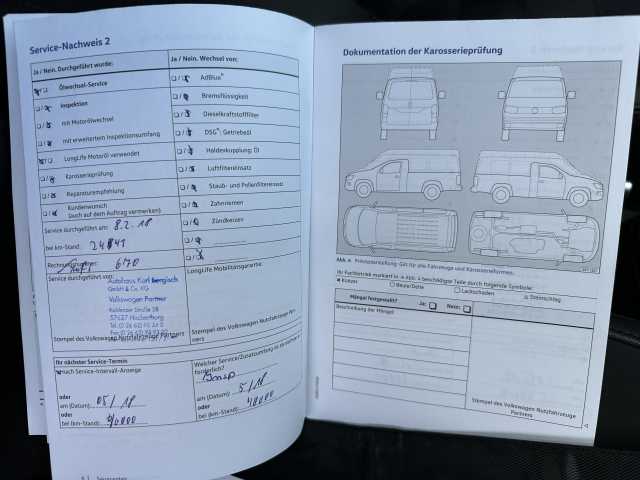 Service-Nachweis 2
Ja / Nein, Durchgeführt wurde:
Ölwechsel-Service
Inspektion
mit Motorölwechsel
mit erweitertem Inspektionsumfang
LongLife Motoröl verwendet
Karosserieprüfung
Reparaturempfehlung
Kundenwunsch
(auch auf dem Auftrag vermerken)
Service durchgeführt am: 8.2.18
bei km-Stand:
Rechnungsnummer: 670
Service durchgeführt von:
Autohaus Karl
GmbH & Co. KG
Volkswagen Partner
57627 Hachenburg
Stempel des Volkswagen Nutzfahrzeuge Partners
Ja / Nein, Wechsel von:
AdBlue®
Bremsflüssigkeit
Dieselkraftstofffilter
DSG®: Getriebeöl
Haldenkupplung: Öl
Luftfiltereinsatz
Staub- und Pollenfiltereinsatz
Zahnriemen
Zündkerzen
LongLife Mobilitätsgarantie
Stempel des Volkswagen Nutzfahrzeuge Partners
Ihr nächster Service-Termin
nach Service-Intervall-Anzeige
oder
am (Datum): 05/18
oder
bei (km-Stand): 40000
Welcher Service/Zusatzumfang ist
erforderlich?
am (Datum): 5/18
oder
bei (km-Stand): 40000
Dokumentation der Karosserieprüfung
Prinzipdarstellung: Gilt für alle Fahrzeuge und Karosserieformen.
Kratzer
Beule/Delle
Lackschaden
Steinschlag
Mängel festgestellt?
Ja:
Nein:
Beschreibung der Mängel:
Stempel des Volkswagen Nutzfahrzeuge
Partners